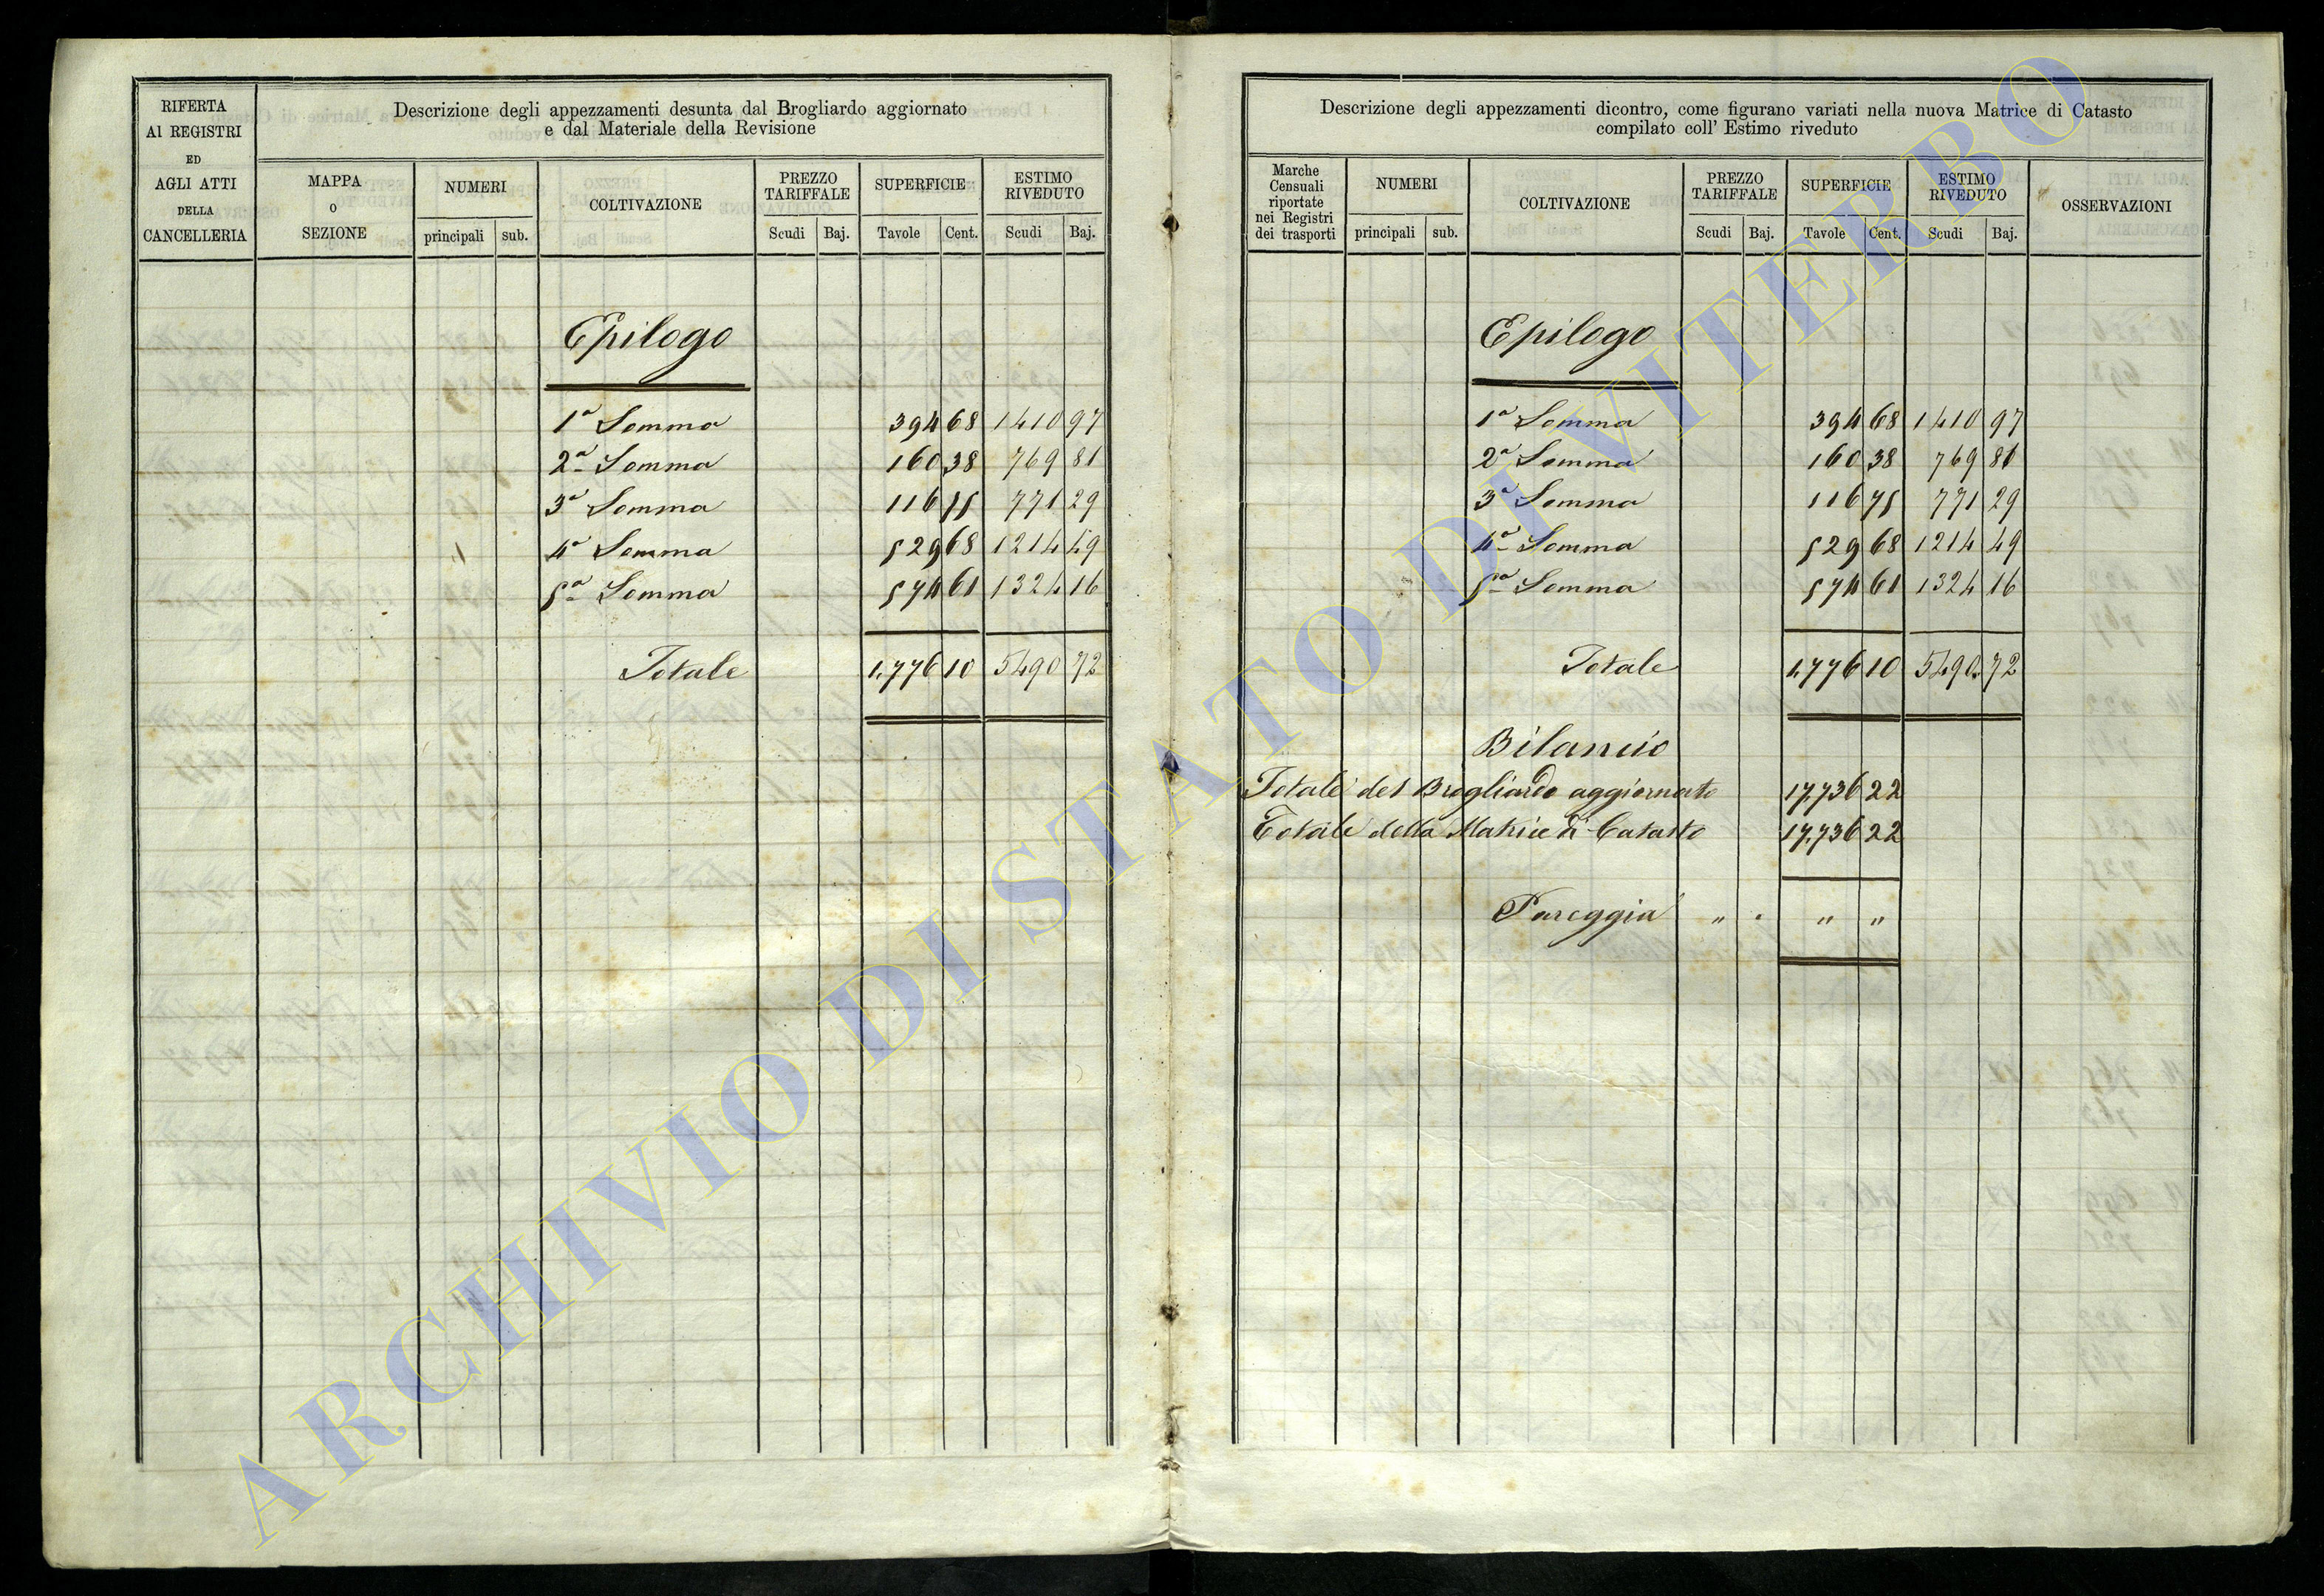 RIFERTA
AI REGISTRI
ED
AGLI ATTI
DELLA
CANCELLERIA
Descrizione degli appezzamenti desunta dal Brogliardo aggiornato
e dal Materiale della Revisione
MAPPA
O
SEZIONE
NUMERI
principali sub.
COLTIVAZIONE
PREZZO
TARIFFALE
Scudi Baj.
SUPERFICIE
Tavole Cent.
ESTIMO
RIVEDUTO
Scudi Baj.
Epilogo
1ª Somma 394 68 1410 97
2ª Somma 160 38 769 81
3ª Somma 116 75 771 29
4ª Somma 529 68 1214 49
5ª Somma 574 61 1324 16
Totale 1.776 10 5490 72
Descrizione degli appezzamenti dicontro, come figurano variati nella nuova Matrice di Catasto
compilato coll' Estimo riveduto
Marche
Censuali
riportate
nei Registri
dei trasporti
NUMERI
principali sub.
COLTIVAZIONE
PREZZO
TARIFFALE
Scudi Baj.
SUPERFICIE
Tavole Cent.
ESTIMO
RIVEDUTO
Scudi Baj.
OSSERVAZIONI
Epilogo
1ª Somma 394 68 1410 97
2ª Somma 160 38 769 81
3ª Somma 116 75 771 29
4ª Somma 529 68 1214 49
5ª Somma 574 61 1324 16
Totale 1.776 10 5490. 72
Bilancio
Totale del Brogliardo aggiornato 17.736 22
Totale della Matrice di Catasto 17.736 22
Pareggia " " " "
ARCHIVIO DI STATO DI VITERBO